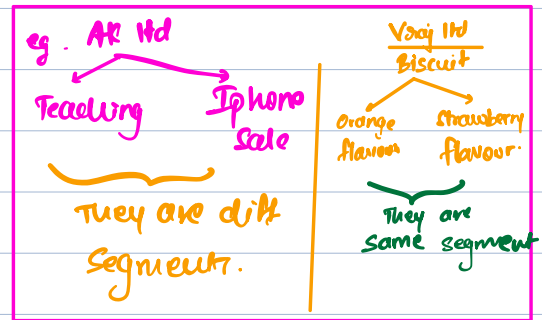 eg. AK ltd
Teaching
Iphone
Sale
They are diff
segment.
Vraj ltd
Biscuit
Orange
flavour
Strawberry
flavour.
They are
same segment